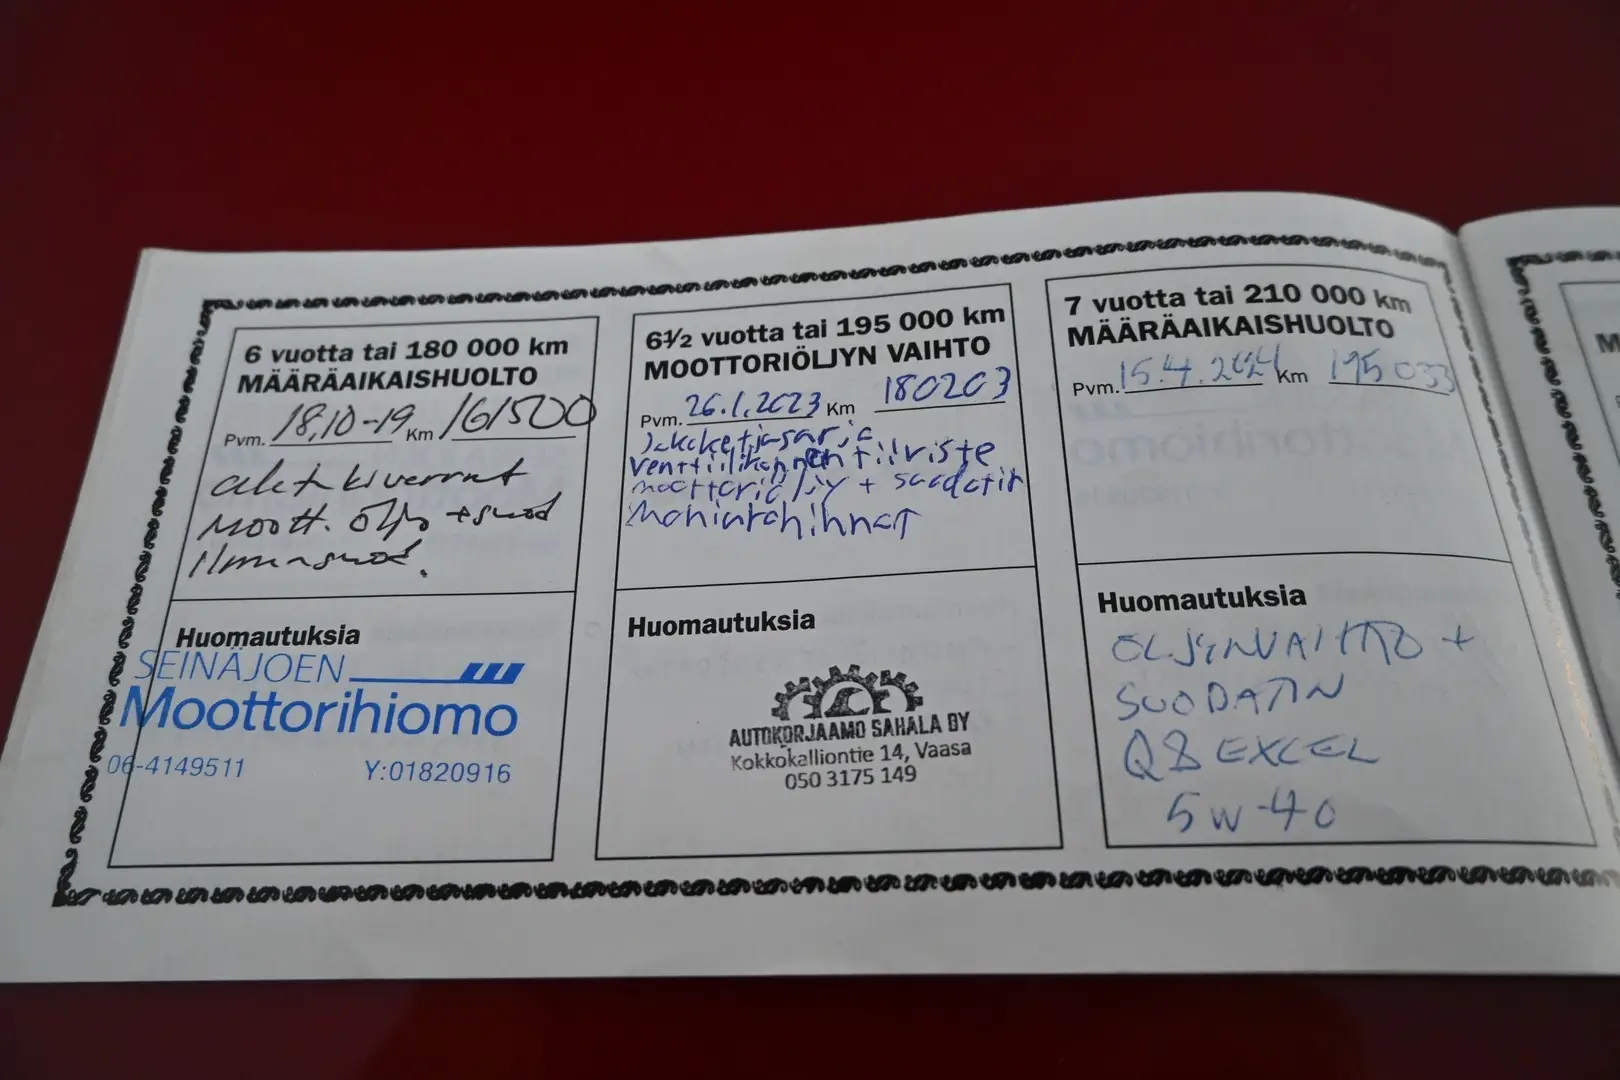 6 vuotta tai 180 000 km
MÄÄRÄAIKAISHUOLTO
Pvm. 18,10-19 Km 161500
Moott. öljy + suod
Huomautuksia
SEINÄJOEN
Moottorihiomo
06-4149511 Y:01820916
6½ vuotta tai 195 000 km
MOOTTORIÖLJYN VAIHTO
Pvm. 26.1.2023 Km 180203
Jakoketjusarja
venttiilikopan tiiviste
moottoriöljy + suodatin
Moniurahihnat
Huomautuksia
AUTOKORJAAMO SAHALA OY
Kokkokalliontie 14, Vaasa
050 3175 149
7 vuotta tai 210 000 km
MÄÄRÄAIKAISHUOLTO
Pvm. 15.4.2024 Km 195033
Huomautuksia
ÖLJYNVAIHTO +
SUODATIN
Q8 EXCEL
5W-40
M